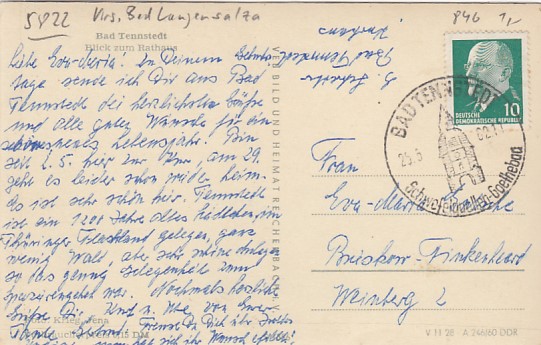 5822 Krs. Bad Langensalza
846 1,-
Bad Tennstedt
Blick zum Rathaus
Liebe Eva-Maria! Zu Deinem Geburts-
tage sende ich Dir aus Bad
Tennstedt die herzlichsten Grüße
und alle guten Wünsche für das
neue Lebensjahr. Bin
seit 2.5. hier zur Kur, am 29.
geht es leider schon wieder heim.
Es ist sehr schön hier. Tennstedt
ist ein 1200 Jahre altes Städtchen, im
Thüringer Flachland gelegen, ganz
wenig Wald, aber sehr schöne Anlagen
so daß genug Gelegenheit zum
Spazierengehen war. Nochmals herzliche
Grüße Dir, und u. Ute von Eurer
Tante
Bad Tennstedt
Kurhaus
VEB BILD UND HEIMAT REICHENBACH I. V.
10
DEUTSCHE
DEMOKRATISCHE REPUBLIK
BAD TENNSTEDT
25.5.62.11
Schwefelquellen Goethebad
Frau
Eva-Maria
Brieskow-Finkenheerd
Weinberg 2
Foto: Krieg, Jena
V 11 28 - A 246/60 DDR